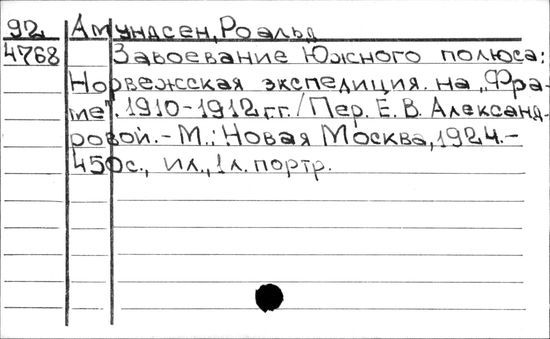 92 Амундсен, Роальд
4768 Завоевание Южного полюса:
Норвежская экспедиция на „Фра-
ме". 1910-1912 г.г. / Пер. Е. В. Александ-
ровой. - М.: Новая Москва, 1924. -
450 с., ил., 1 л. портр.